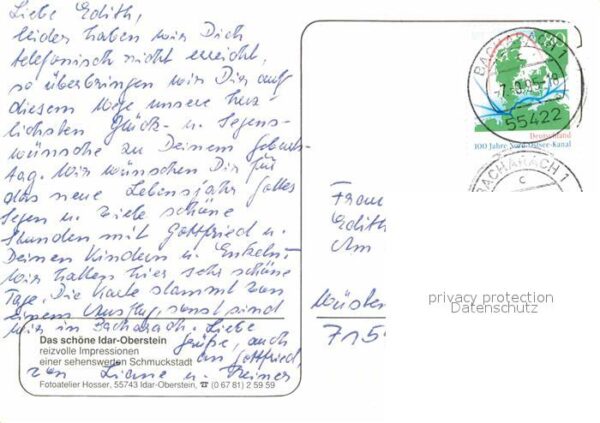 Liebe Edith,
leider haben wir Dich
telefonisch nicht erreicht,
so überbringen wir Dir auf
diesem Wege unsere herz-
lichsten Glück- u. Segens-
wünsche zu Deinem Geburts-
tag. Wir wünschen Dir für
das neue Lebensjahr Gottes
Segen u. viele schöne
Stunden mit Gottfried u.
Deinen Kindern u. Enkeln.
Wir hatten hier sehr schöne
Tage. Die Karte stammt von
einem Ausflug, sonst sind
wir in Bacharach. Liebe
Grüße, auch
an Gottfried,
von Liane u. Reiner
Das schöne Idar-Oberstein
reizvolle Impressionen
einer sehenswerten Schmuckstadt
Fotoatelier Hosser, 55743 Idar-Oberstein, ☎ (0 67 81) 2 59 59
BACHARACH 1
55422
Deutschland
100 Jahre Nord-Ostsee-Kanal
BACHARACH 1
C
Frau
Edith
Am
Wüsten
715
privacy protection
Datenschutz